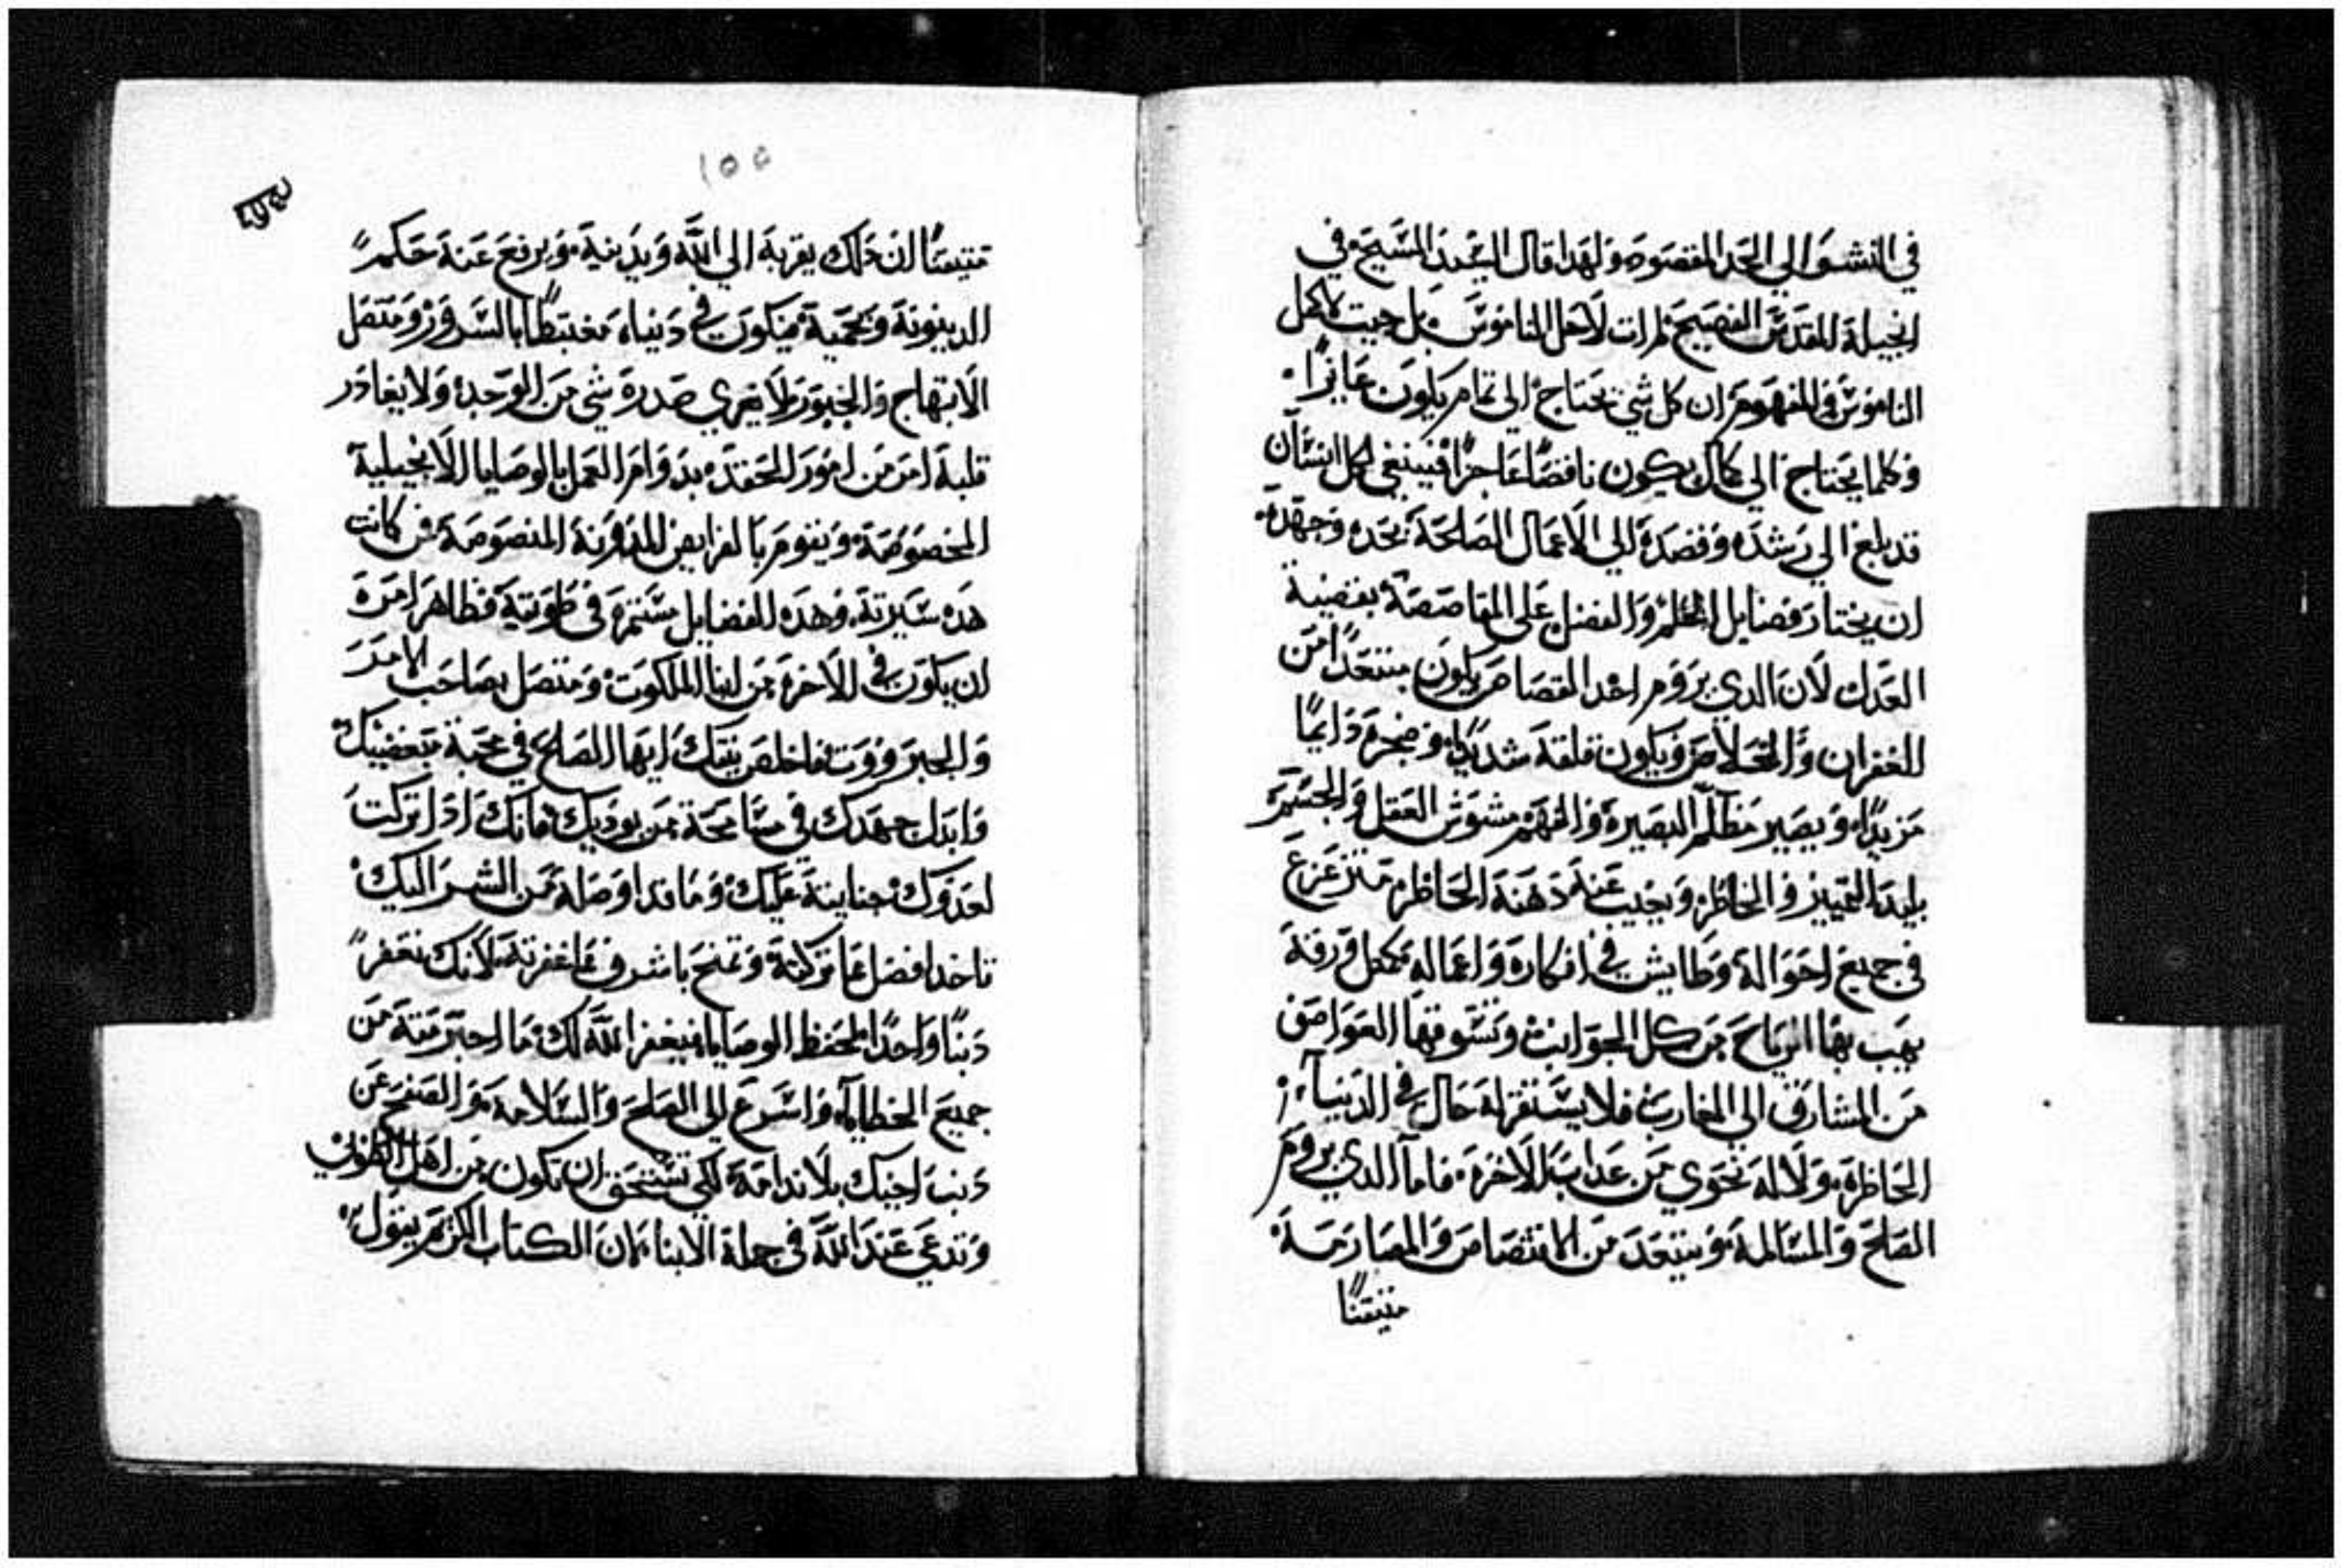 في النشو الي الحد المقصود ولهدا قال السيد المسيح في
انجيله المقدس الفصيح لم ات لاحل الناموس بل جيت لاكمل
الناموس فالمفهوم ان كل شي يحتاج الي تمام يكون عايزا
وكلما يحتاج الي كمال يكون ناقصا عاجزا فينبغي لكل انسان
قد بلغ الي رشده وقصده الي الاعمال الصالحة بجده وجهده
ان يختار فضايل الحلم والفضل علي المقاصصة بقضية
العدل لان الدي يروم اخد القصاص يكون مبتعدا من
الغفران والخلاص ويكون قلقه شديدا وضجره دايما
مزيدا ويصير مظلم البصيرة والفهم مشوش العقل والجسم
بليد التمييز والخاطر ويغيب عنه دهنه الحاظر متزعزع
في جميع احواله وطايش في افكاره واعماله كمثل ورقة
يهب بها الرياح من كل الجوانب وتسوقها العواصف
من المشارق الي المغارب فلا يستقر له حال في الدنيا
الحاظرة ولا له نحوي من عداب الاخرة فاما الدي يروم
الصلح والمسالمة ويبتعد من الاقتصاص والمصارمة
متيقنا
١٥٥
متيقنا ان دلك يقربه الي الله ويدنيه ويرفع عنه حكم
الدينونة ويحميه فيكون في دنياه مغتبطا بالسرور ومتصل
الابتهاج والحبور ولا يعري صدره شي من الوجد ولا يغادر
قلبه امر من امور الحقد بدوام العمل بالوصايا الانجيلية
المخصوصة ويقوم بالفرايض المنصوصة فمن كانت
هده سيرته وهده الفضايل مستمرة في طويته فظاهر امره
ان يكون في الاخرة من ابنا الملكوت ومتصل بصاحب
والجبروت فاخلص نيتك ايها الصالح في محبة مبغضيك
وابدل جهدك في مسامحة من يوديك فانك ادا تركت
لعدوك جنايته عليك وما قد اوصله من الشر اليك
تاخد افضل مما تركته وتمنح باشرف مما غفرته لانك تغفر
دنبا واحدا لحفظ الوصايا فيغفر الله لك ما اجترمته من
جميع الخطايا واسرع الي الصلح والسلامة والصفح عن
دنب اخيك بلا ندامة لكي تستحق ان تكون من اهل الطوبي
وتدعي عند الله في جملة الابنا لان الكتاب الكريم يقول